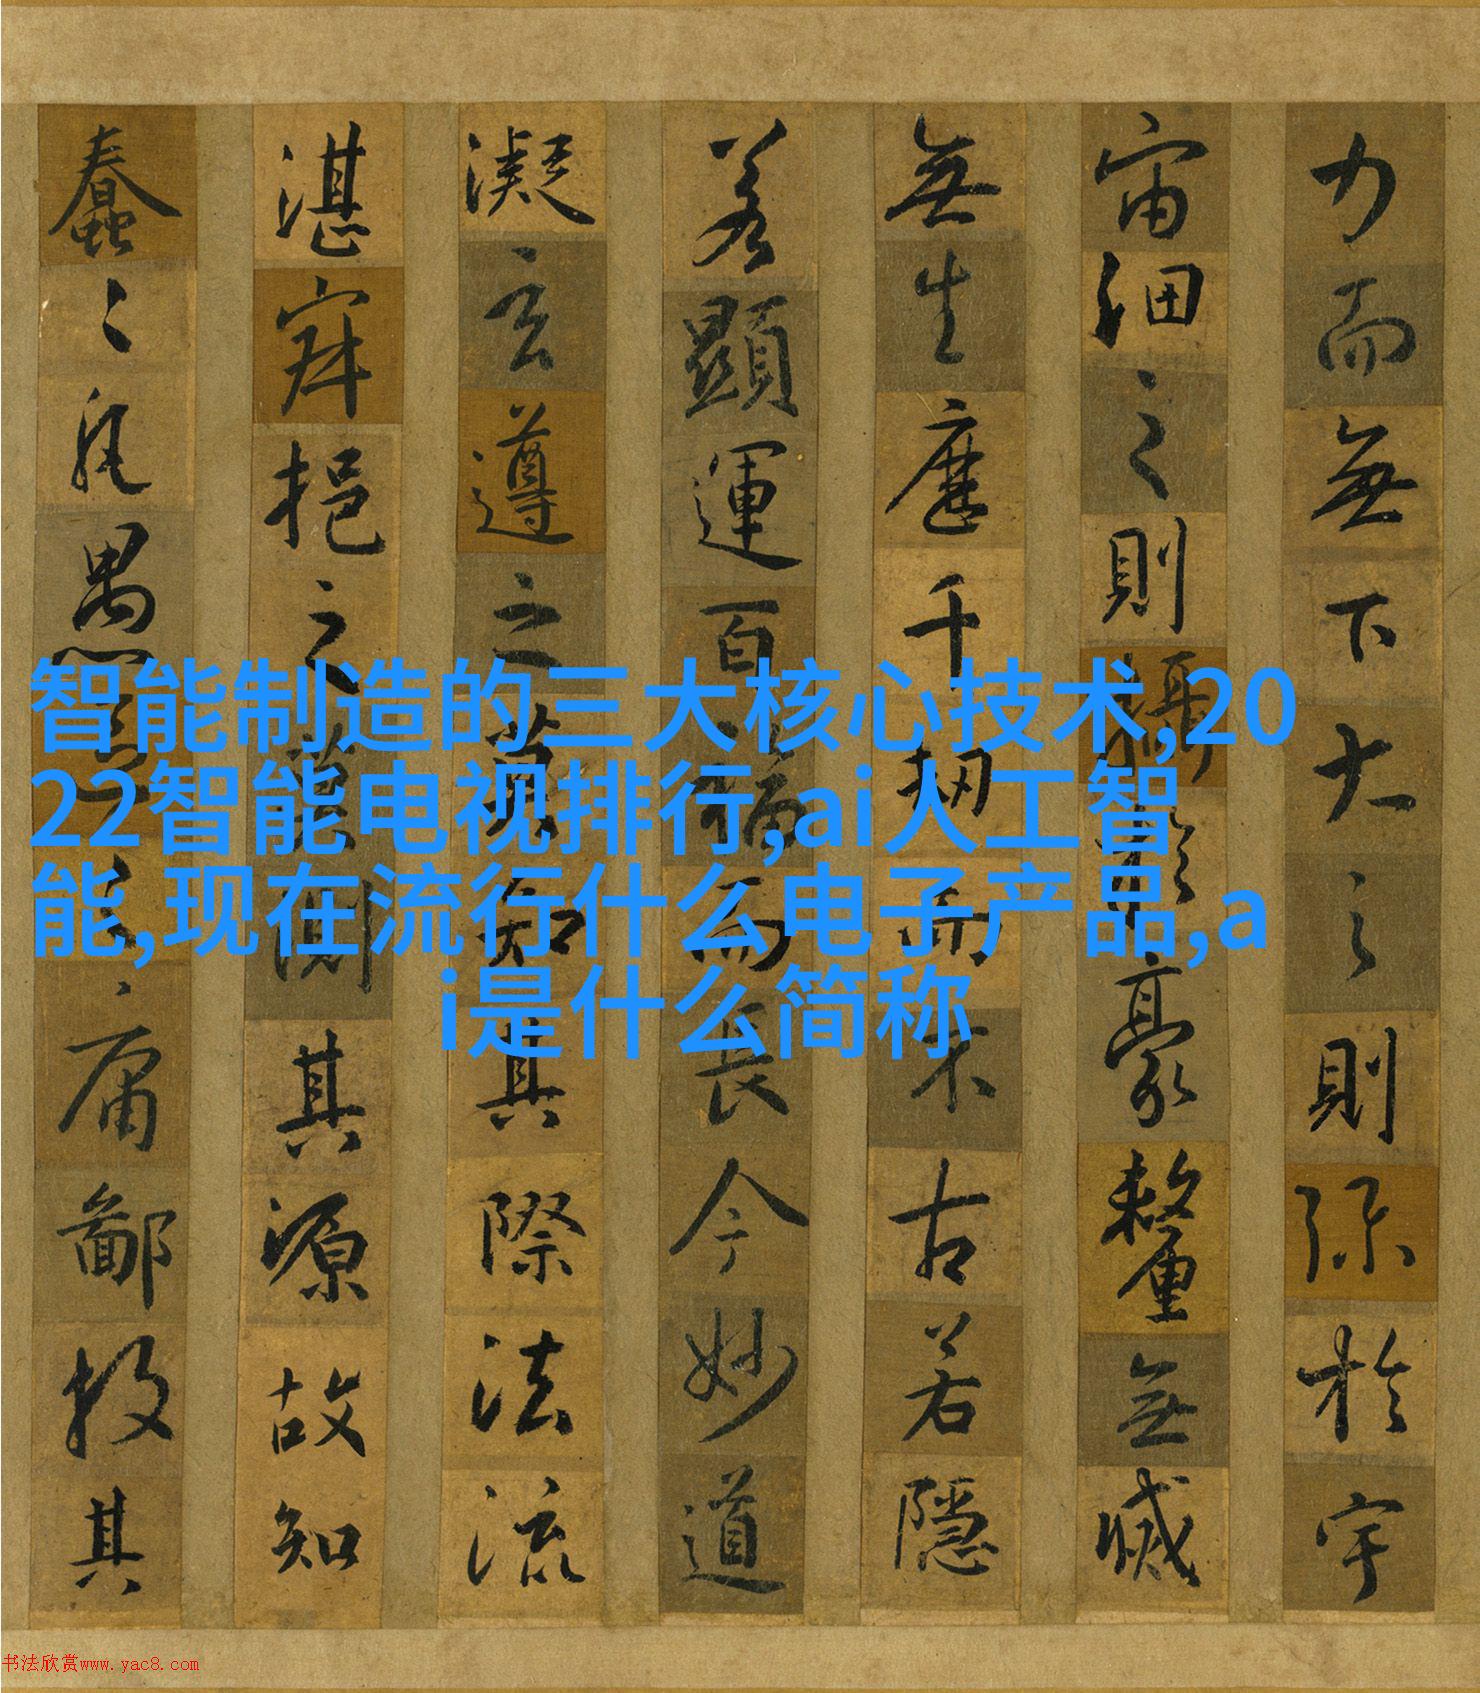 力而無下大之則弥於宇
宙細之則攝於豪釐無滅
無生歷千劫而不古若隱
若顯運百福而長今妙道
凝玄遵之莫知其際法流
湛寂挹之莫測其源故知
蠢〻凡愚區〻庸鄙投其
智能制造的三大核心技术,20
22智能电视排行,ai人工智
能,现在流行什么电子产品,a
i是什么简称
书法欣赏www.yac8.com